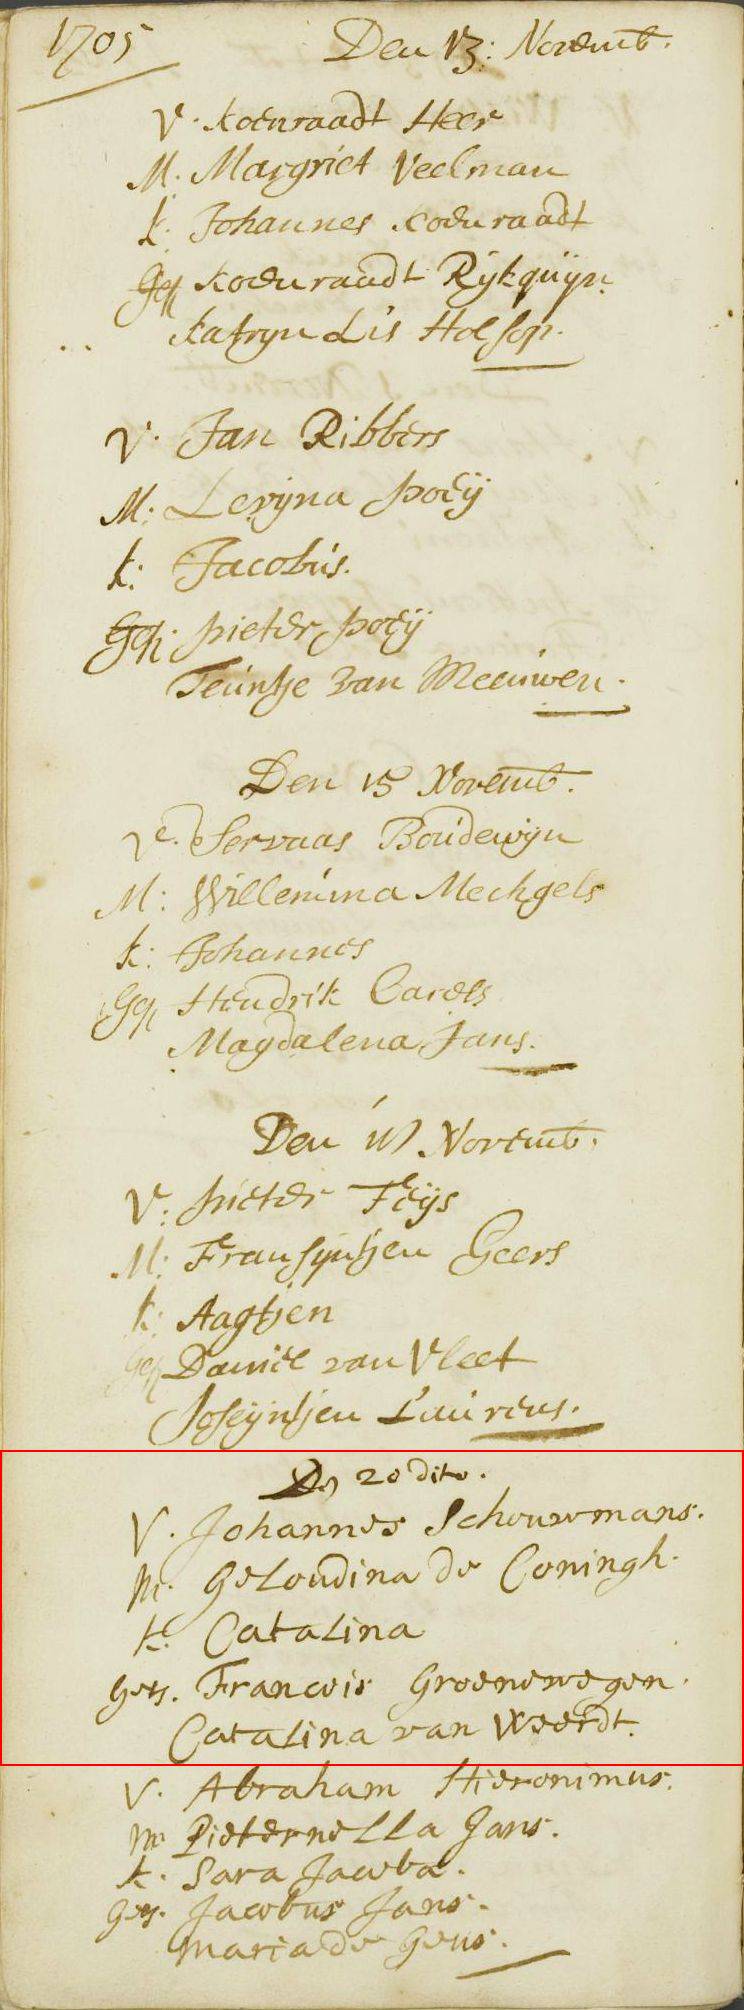 1705
Den 13: Novemb.
V. Koenraadt Heer
M. Margriet Veelman
k. Johannes Koenraadt
Get Koenraadt Rijkquijn.
Katryn Lis Holsop.
V. Jan Ribbers
M: Levyna poeij
k: Jacobus.
Get. pieter poeij
Teuntje van Meeuwen.
Den 15 Novemb.
V. Servaas Boudewyn
M: Willemina Mechgels
k: Johannes
Get Hendrik Carels
Magdalena Jans.
Den Novemb.
V: pieter Feijs
M: Fransyntjen Geers
k: Aagtjen
Get Daniel van Vleet
Joseyntjen Laurens.
Den 20 dito.
V. Johannes Schouwmans.
M. Geloudina de Coningh.
k. Catalina
Get. Francois Groenewegen.
Catalina van Weerdt.
V. Abraham Hieronimus.
M Pieternella Jans.
k. Sara Jacoba.
Get. Jacobus Jans.
Maria de Geus.